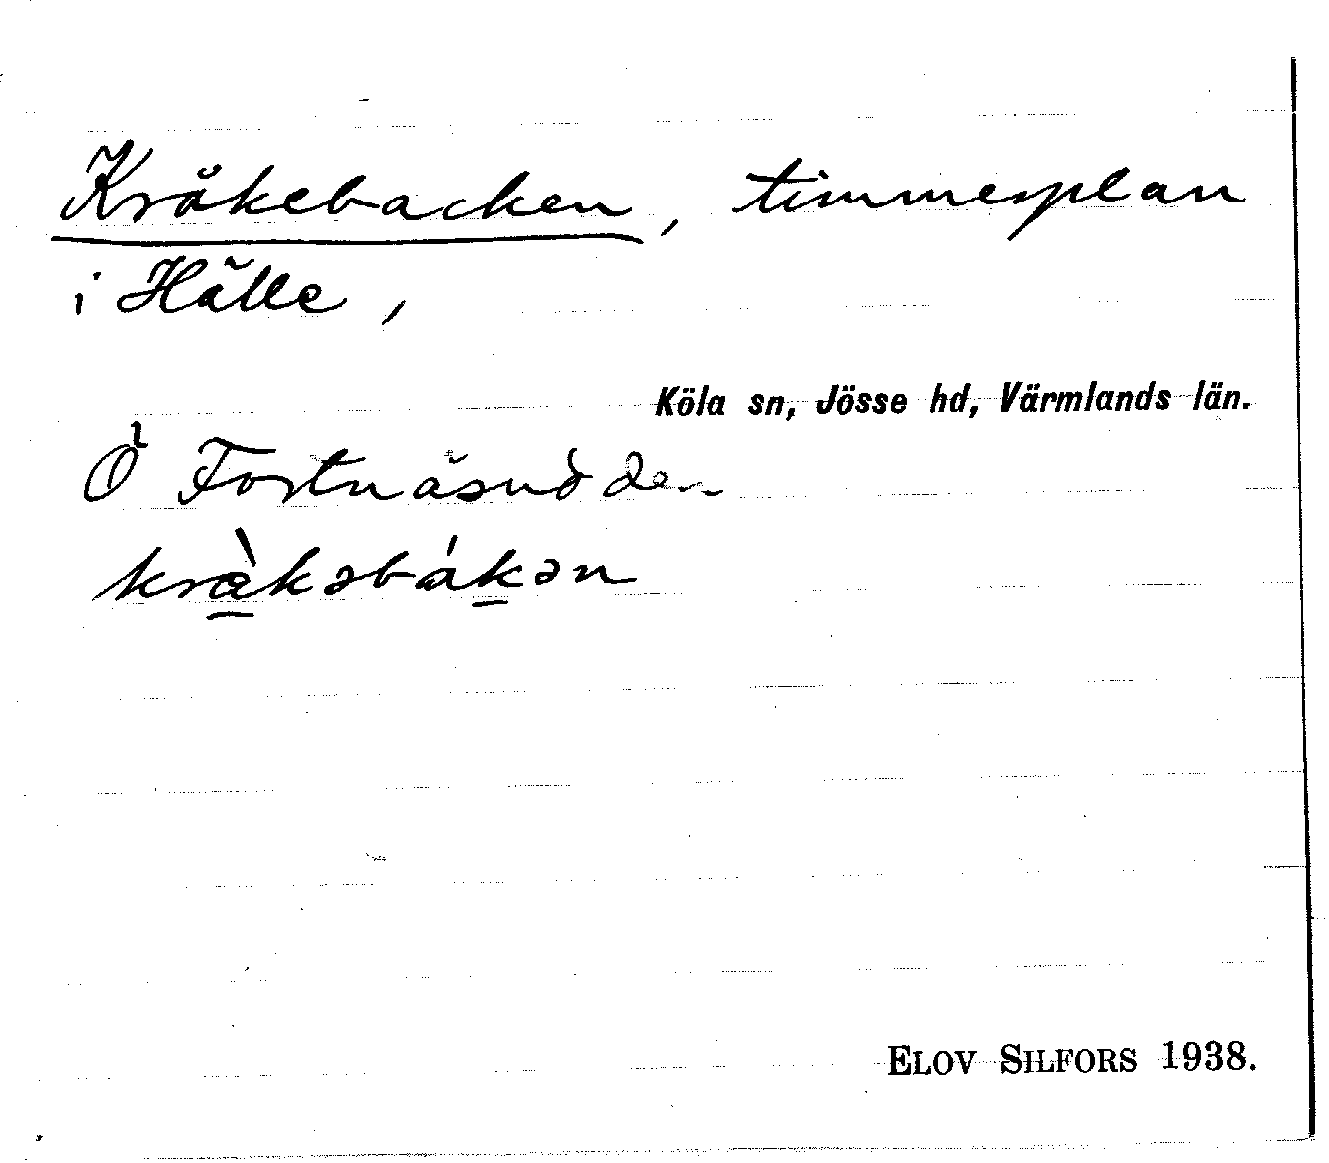 Kråkebacken, timmerplan
i Hälle,
Köla sn, Jösse hd, Värmlands län.
Ö Fortnäsudden
kràkəbákən
ELOV SILFORS 1938.